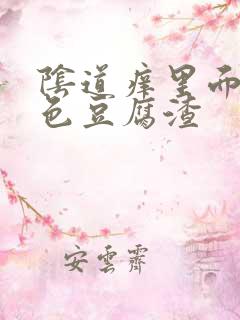 陰道痒里而
色豆腐渣
安雲霽